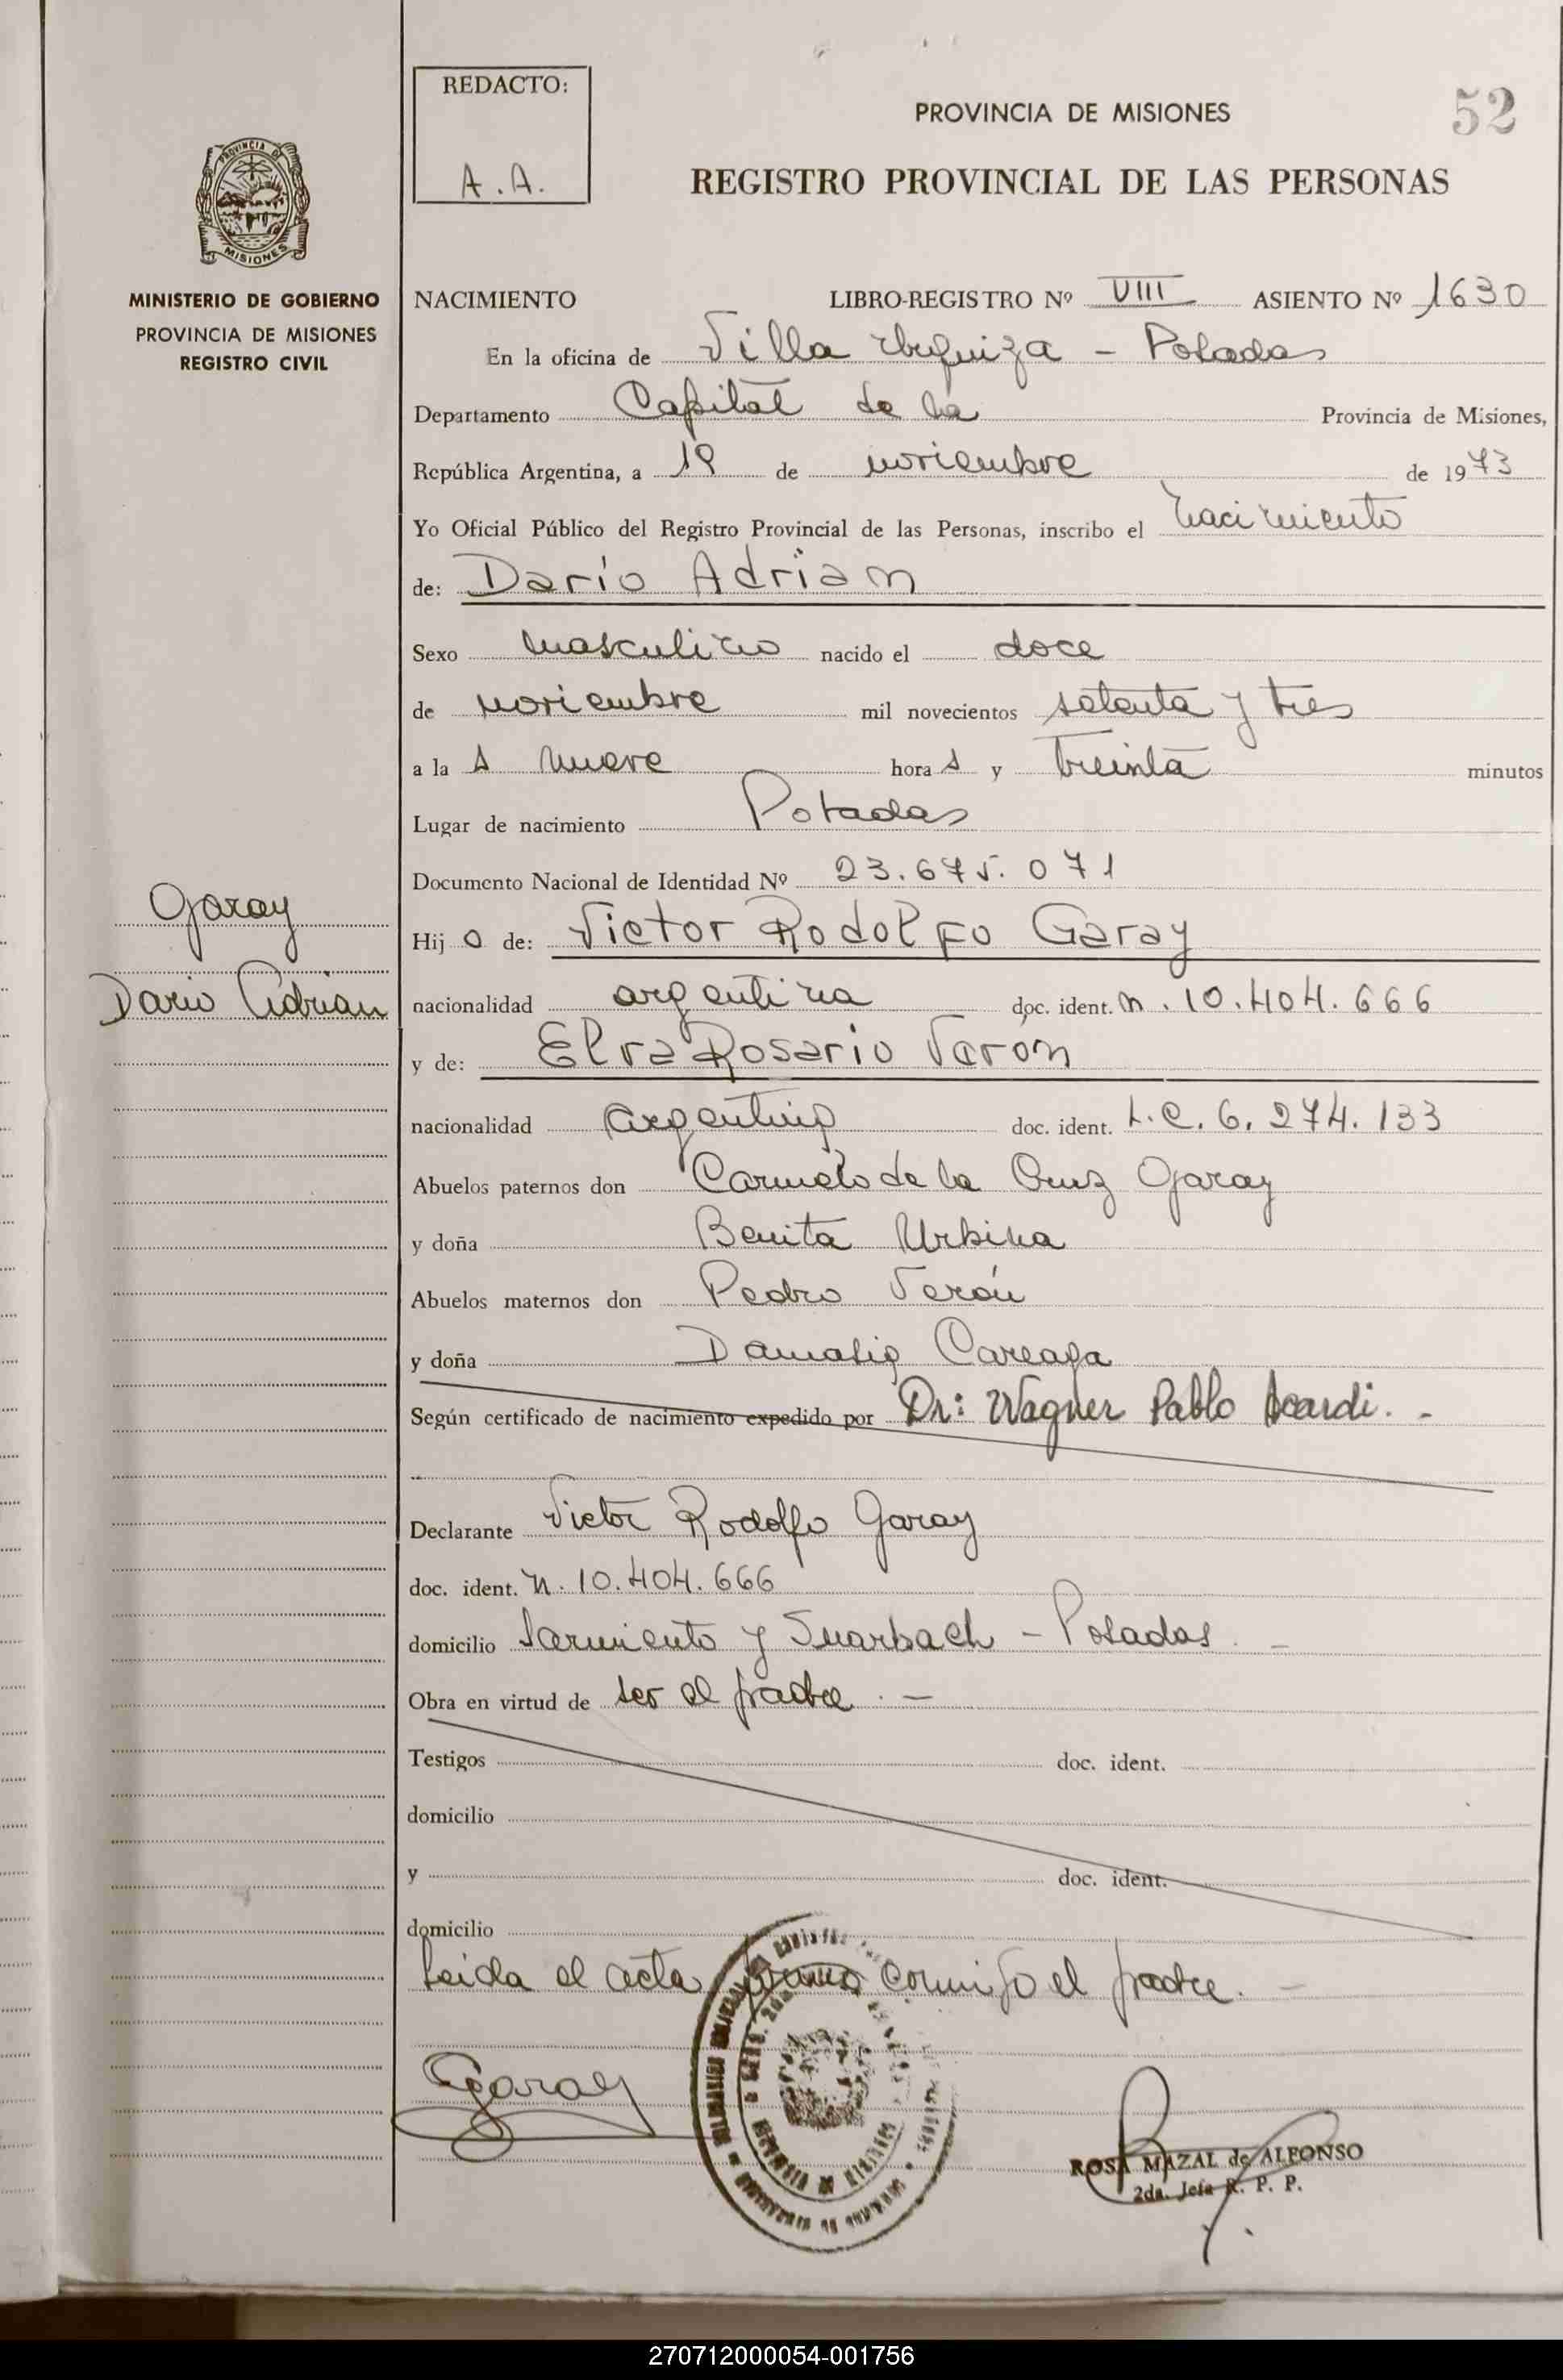 REDACTO:
A.A.
PROVINCIA DE MISIONES
52
REGISTRO PROVINCIAL DE LAS PERSONAS
MINISTERIO DE GOBIERNO
PROVINCIA DE MISIONES
REGISTRO CIVIL
NACIMIENTO LIBRO-REGISTRO Nº VIII ASIENTO Nº 1630
En la oficina de Villa Urquiza - Posadas
Departamento Capital de la Provincia de Misiones,
República Argentina, a 19 de noviembre de 1973
Yo Oficial Público del Registro Provincial de las Personas, inscribo el nacimiento
de: Darío Adrian
Sexo masculino nacido el doce
de noviembre mil novecientos setenta y tres
a la s nueve hora s y treinta minutos
Lugar de nacimiento Posadas
Documento Nacional de Identidad Nº 23.675.071
Garay
Dario Adrian
Hij o de: Victor Rodolfo Garay
nacionalidad argentina doc. ident. M. 10.404.666
y de: Elva Rosario Veron
nacionalidad argentina doc. ident. L.C. 6.274.133
Abuelos paternos don Carmelo de la Cruz Garay
y doña Benita Urbina
Abuelos maternos don Pedro Verón
y doña Damasia Careaga
Según certificado de nacimiento expedido por Dr: Wagner Pablo Acardi. -
Declarante Victor Rodolfo Garay
doc. ident. M. 10.404.666
domicilio Sarmiento y Suarbach - Posadas. -
Obra en virtud de ser el padre. -
Testigos doc. ident.
domicilio
y doc. ident.
domicilio
Leida el acta firma conmigo el padre. -
Garay
ROSA MAZAL de ALFONSO
2da. Jefa R. P. P.
270712000054-001756